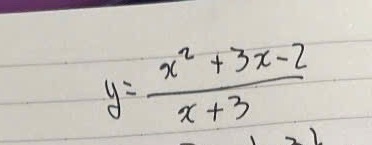 y = (x² + 3x - 2)/(x + 3)